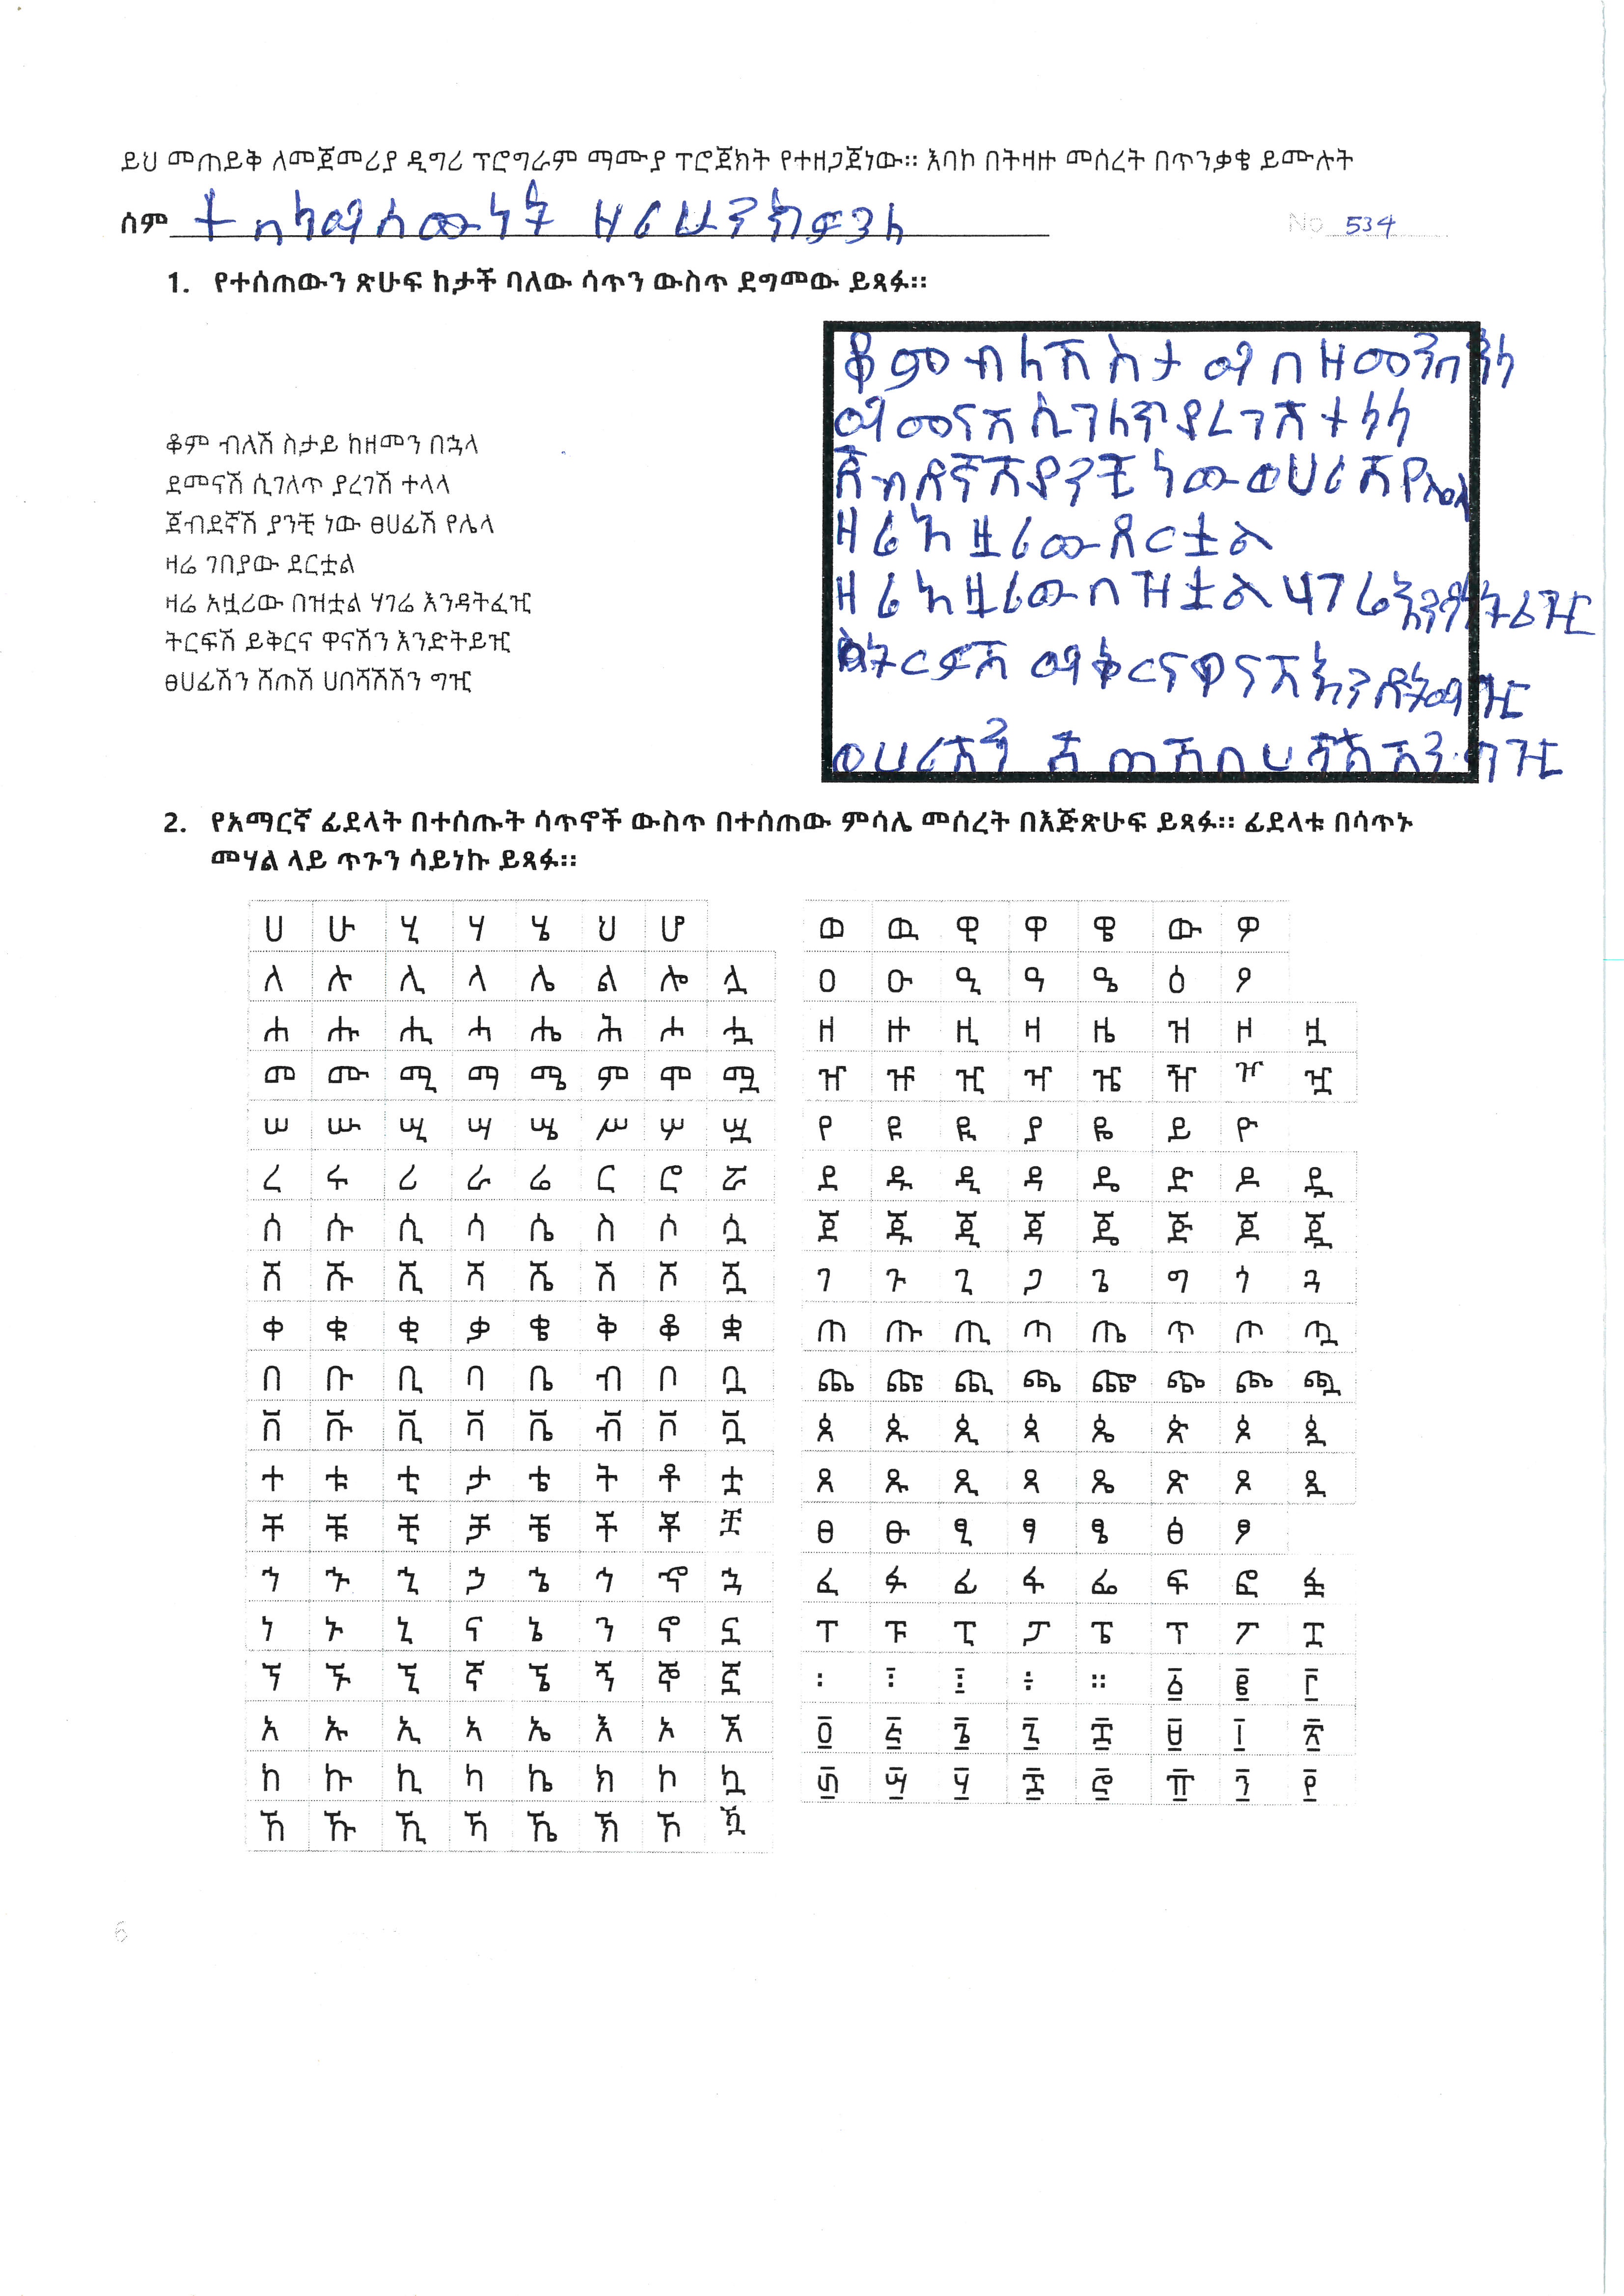 ይህ መጠይቅ ለመጀመሪያ ዲግሪ ፕሮግራም ማሙያ ፐሮጀክት የተዘጋጀነው። እባኮ በትዛዙ መሰረት በጥንቃቄ ይሙሉት
ሰም
No 534
1. የተሰጠውን ጽሁፍ ከታች ባለው ሳጥን ውስጥ ደግመው ይጻፉ።
ቆም ብለሽ ስታይ ከዘመን በኋላ
ደመናሽ ሲገለጥ ያረገሽ ተላላ
ጀብደኛሽ ያንቺ ነው ፀሀፊሽ የሌላ
ዛሬ ገበያው ደርቷል
ዛሬ አዟሪው በዝቷል ሃገሬ እንዳትፈዢ
ትርፍሽ ይቅርና ዋናሽን እንድትይዢ
ፀሀፊሽን ሸጠሽ ሀበሻሽሽን ግዢ
ቆም ብለሽ ስታ በዘመን
መናሽ ሲገለጥ ያረገሽ ተላላ
ጀብደኛሽ ያንቺ ነው
ዛሬ አዟሪው ደርቷል
ዛሬ አዟሪው በዝቷል ሃገሬ እንዳትፈዢ
ዋናሽ
ሸጠሽ ግዢ
2. የአማርኛ ፊደላት በተሰጡት ሳጥኖች ውስጥ በተሰጠው ምሳሌ መሰረት በእጅጽሁፍ ይጻፉ። ፊደላቱ በሳጥኑ
መሃል ላይ ጥጉን ሳይነኩ ይጻፉ።
ሀ ሁ ሂ ሃ ሄ ህ ሆ
ለ ሉ ሊ ላ ሌ ል ሎ ሏ
ሐ ሑ ሒ ሓ ሔ ሕ ሖ ሗ
መ ሙ ሚ ማ ሜ ም ሞ ሟ
ሠ ሡ ሢ ሣ ሤ ሥ ሦ ሧ
ረ ሩ ሪ ራ ሬ ር ሮ ሯ
ሰ ሱ ሲ ሳ ሴ ስ ሶ ሷ
ሸ ሹ ሺ ሻ ሼ ሽ ሾ ሿ
ቀ ቁ ቂ ቃ ቄ ቅ ቆ ቋ
በ ቡ ቢ ባ ቤ ብ ቦ ቧ
ቨ ቩ ቪ ቫ ቬ ቭ ቮ ቯ
ተ ቱ ቲ ታ ቴ ት ቶ ቷ
ቸ ቹ ቺ ቻ ቼ ች ቾ ቿ
ኀ ኁ ኂ ኃ ኄ ኅ ኆ ኋ
ነ ኑ ኒ ና ኔ ን ኖ ኗ
ኘ ኙ ኚ ኛ ኜ ኝ ኞ ኟ
አ ኡ ኢ ኣ ኤ እ ኦ ኧ
ከ ኩ ኪ ካ ኬ ክ ኮ ኳ
ኸ ኹ ኺ ኻ ኼ ኽ ኾ ዃ
ወ ዉ ዊ ዋ ዌ ው ዎ
ዐ ዑ ዒ ዓ ዔ ዕ ዖ
ዘ ዙ ዚ ዛ ዜ ዝ ዞ ዟ
ዠ ዡ ዢ ዣ ዤ ዥ ዦ ዧ
የ ዩ ዪ ያ ዬ ይ ዮ
ደ ዱ ዲ ዳ ዴ ድ ዶ ዷ
ጀ ጁ ጂ ጃ ጄ ጅ ጆ ጇ
ገ ጉ ጊ ጋ ጌ ግ ጎ ጓ
ጠ ጡ ጢ ጣ ጤ ጥ ጦ ጧ
ጨ ጩ ጪ ጫ ጬ ጭ ጮ ጯ
ጰ ጱ ጲ ጳ ጴ ጵ ጶ ጷ
ጸ ጹ ጺ ጻ ጼ ጽ ጾ ጿ
ፀ ፁ ፂ ፃ ፄ ፅ ፆ
ፈ ፉ ፊ ፋ ፌ ፍ ፎ ፏ
ፐ ፑ ፒ ፓ ፔ ፕ ፖ ፗ
፡ ፣ ፤ ÷ ። ፩ ፪ ፫
፬ ፭ ፮ ፯ ፰ ፱ ፲ ፳
፴ ፵ ፶ ፷ ፸ ፹ ፺ ፻